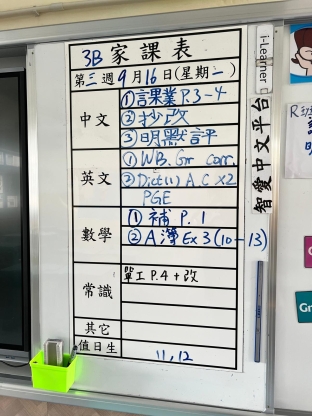 3B 家課表
第三週9月16日(星期一)
中文
①課業P.3-4
②抄改
③明默評
英文
①WB. Gr corr.
②Dict(1) A.C X2
PGE
數學
①補 P.1
②A簿 Ex 3 (10-13)
常識
單工 P.4 + 改
其它
值日生
11, 12
i-Learner
智愛中文平台